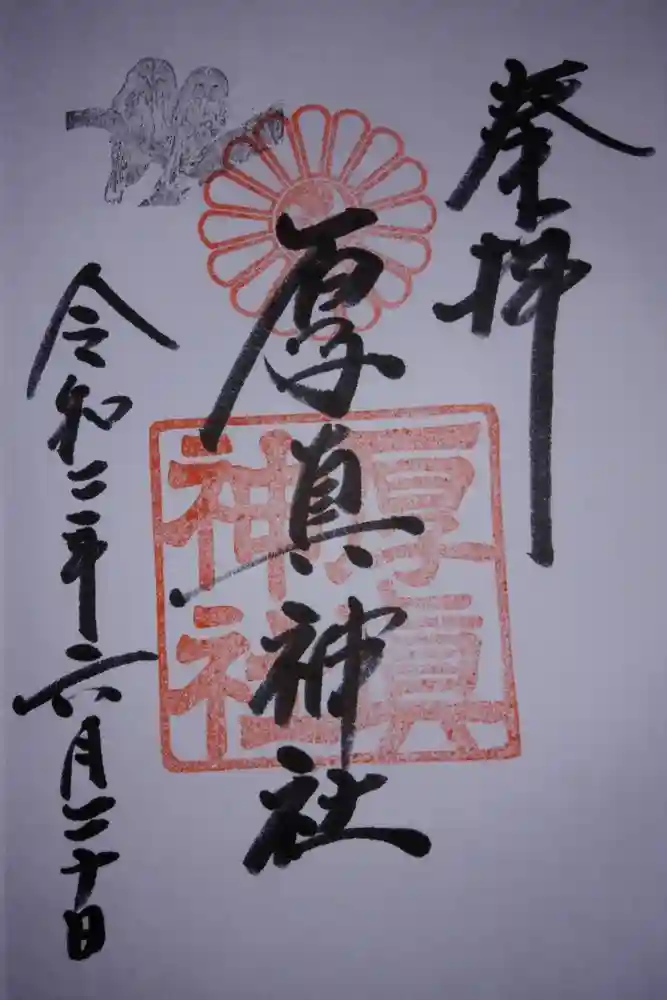 奉拝
厚真神社
厚真
神社
令和二年六月二十日